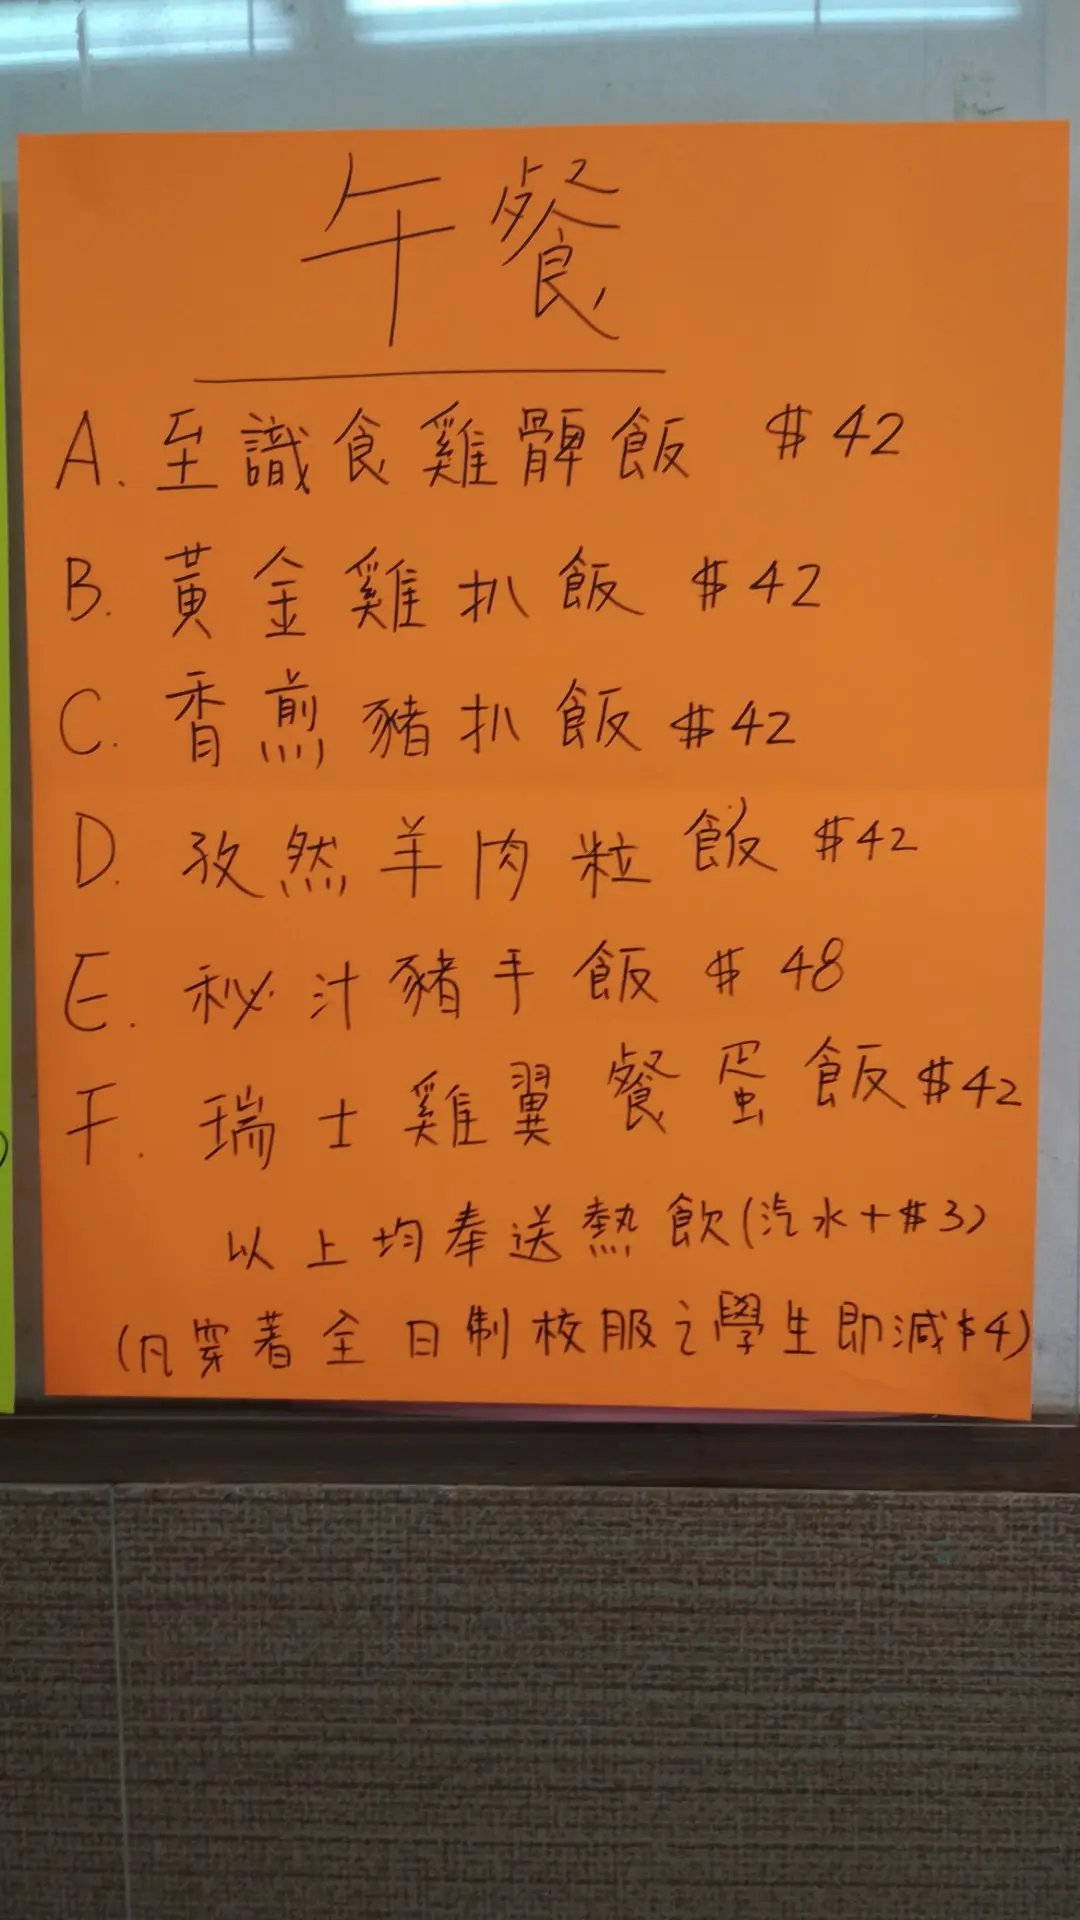 午餐
A. 至識食雞髀飯 $42
B. 黃金雞扒飯 $42
C. 香煎豬扒飯 $42
D. 孜然羊肉粒飯 $42
E. 秘汁豬手飯 $48
F. 瑞士雞翼餐蛋飯 $42
以上均奉送熱飲(汽水+$3)
(凡穿著全日制校服之學生即減$4)